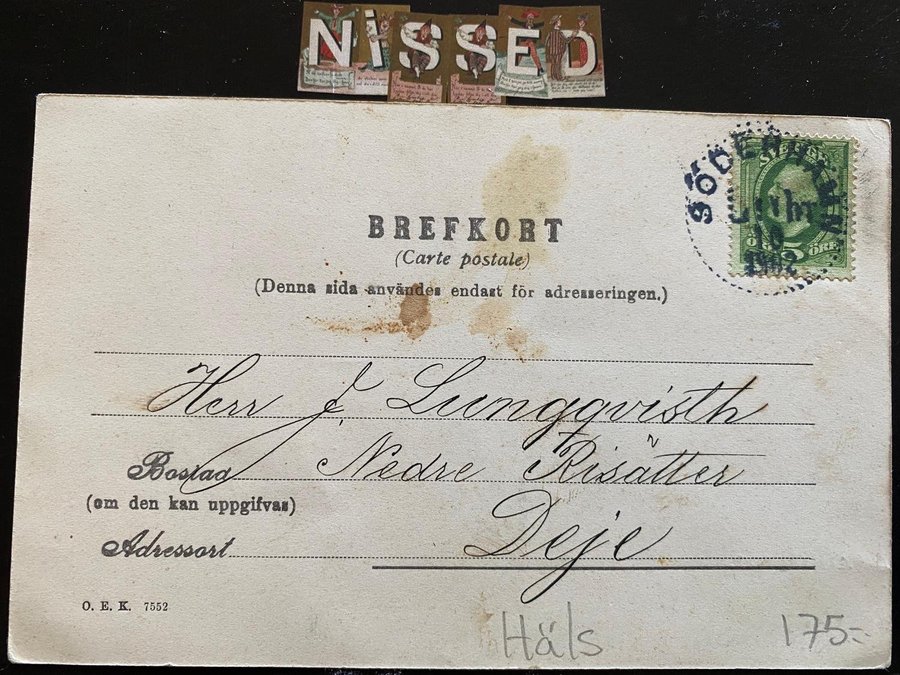 NISSED
BREFKORT
(Carte postale)
(Denna sida användes endast för adresseringen.)
SÖDERHAMN
10
1902
SVERIGE
5 ÖRE
Herr J. Lungqvisth
Bostad Nedre Risätter
(om den kan uppgifvas)
Adressort Deje
O. E. K. 7552
Häls 175:-